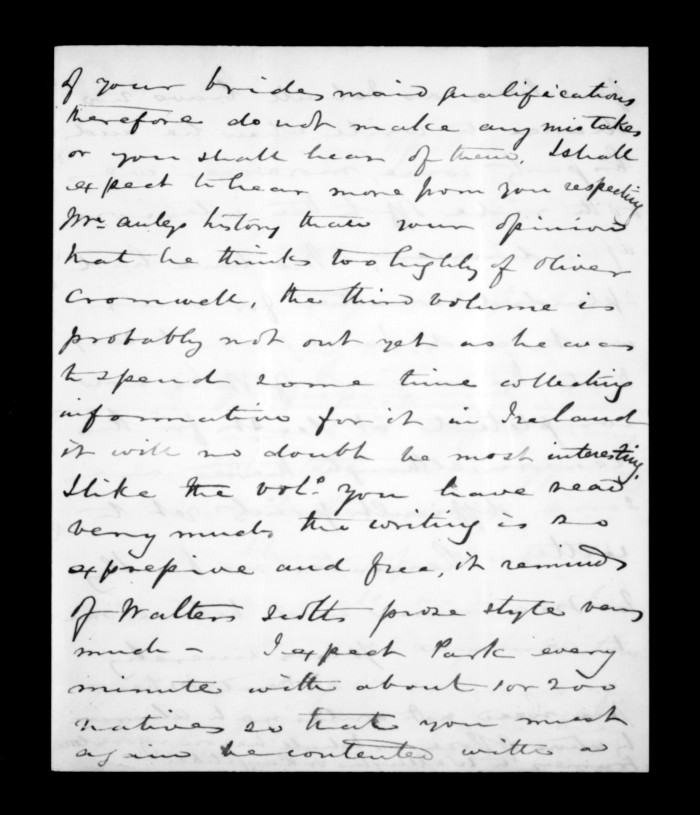 of your brides maid qualifications
therefore do not make any mistakes
or you shall hear of them. I shall
expect to hear more from you respecting
Mc.aulys history than your opinion
that he thinks too highly of Oliver
Cromwell, the third volume is
probably not out yet as he was
to spend some time collecting
information for it in Ireland
it will no doubt be most interesting.
I like the vols you have read
very much the writing is so
expressive and free, it reminds
of Walters Scotts prose style very
much - I expect Park every
minute with about 1 or 200
natives so that you must
again be contented with a